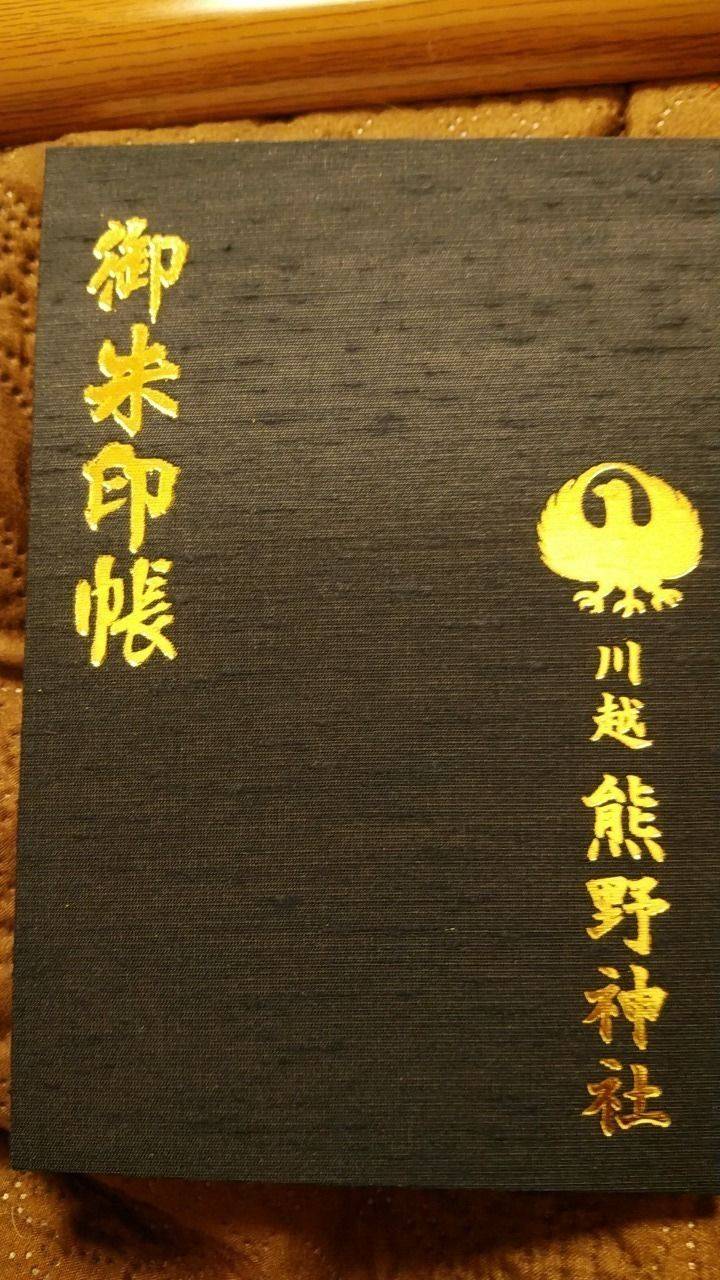 御朱印帳
川越 熊野神社